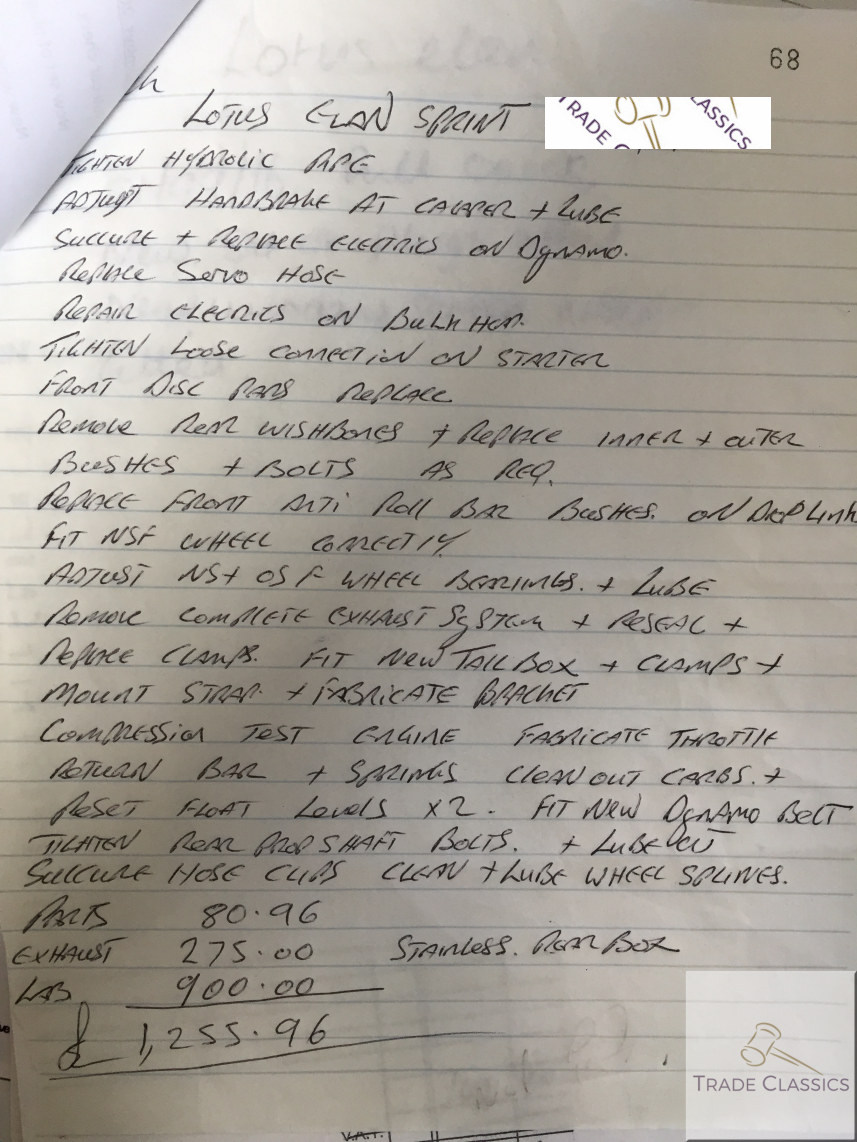 68
LOTUS ELAN SPRINT
TRADE CLASSICS
TIGHTEN HYDROLIC PIPE
ADJUST HANDBRAKE AT CALAPER + LUBE
SUCCURE + REPLACE ELECTRICS ON DYNAMO.
REPLACE SERVO HOSE
REPAIR ELECRICS ON BULKHEAD.
TIGHTEN LOOSE CONNECTION ON STARTER
FRONT DISC PADS REPLACE
REMOVE REAR WISHBONES + REPLACE INNER + OUTER
BUSHES + BOLTS AS REQ.
REPLACE FRONT ANTI ROLL BAR BUSHES. ON DROP LINK
FIT NSF WHEEL CORRECTLY
ADJUST NS + OS F WHEEL BEARINGS. + LUBE
REMOVE COMPLETE EXHAUST SYSTEM + RESEAL +
REPLACE CLAMPS. FIT NEW TAIL BOX + CLAMPS +
MOUNT STRAP. + FABRICATE BRACKET
COMPRESSION TEST ENGINE FABRICATE THROTTLE
RETURN BAR + SPRINGS CLEAN OUT CARBS. +
RESET FLOAT LEVELS X2. FIT NEW DYNAMO BELT
TIGHTEN REAR PROP SHAFT BOLTS. + LUBE
SUCCURE HOSE CLIPS CLEAN + LUBE WHEEL SPLINES.
PARTS 80.96
EXHAUST 275.00 STAINLESS. REAR BOX
LAB 900.00
£ 1,255.96
TRADE CLASSICS
V.A.T.